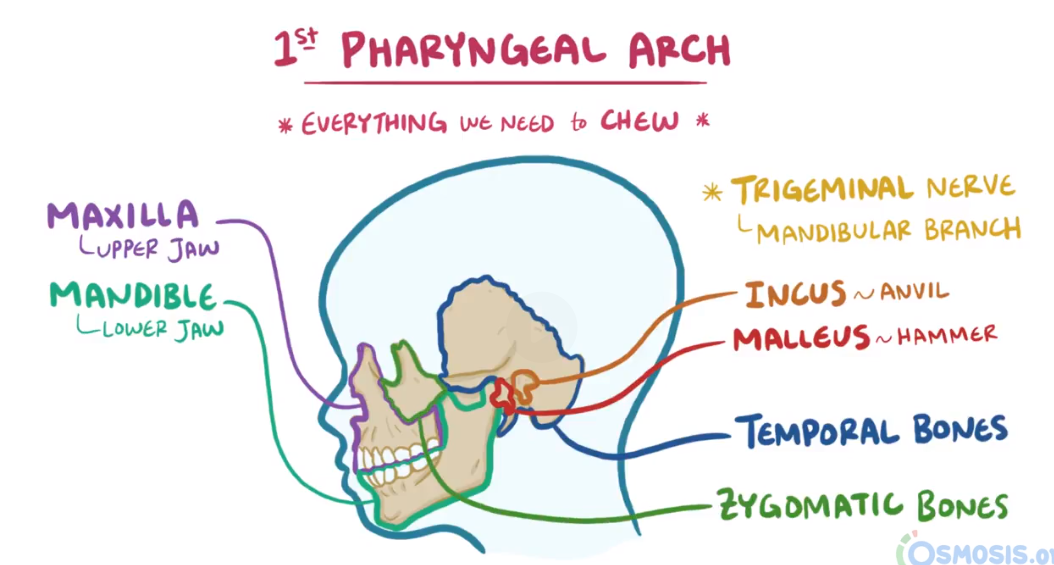 1st PHARYNGEAL ARCH
* EVERYTHING WE NEED to CHEW *
MAXILLA
UPPER JAW
MANDIBLE
LOWER JAW
* TRIGEMINAL NERVE
MANDIBULAR BRANCH
INCUS ~ ANVIL
MALLEUS ~ HAMMER
TEMPORAL BONES
ZYGOMATIC BONES
OSMOSIS.or